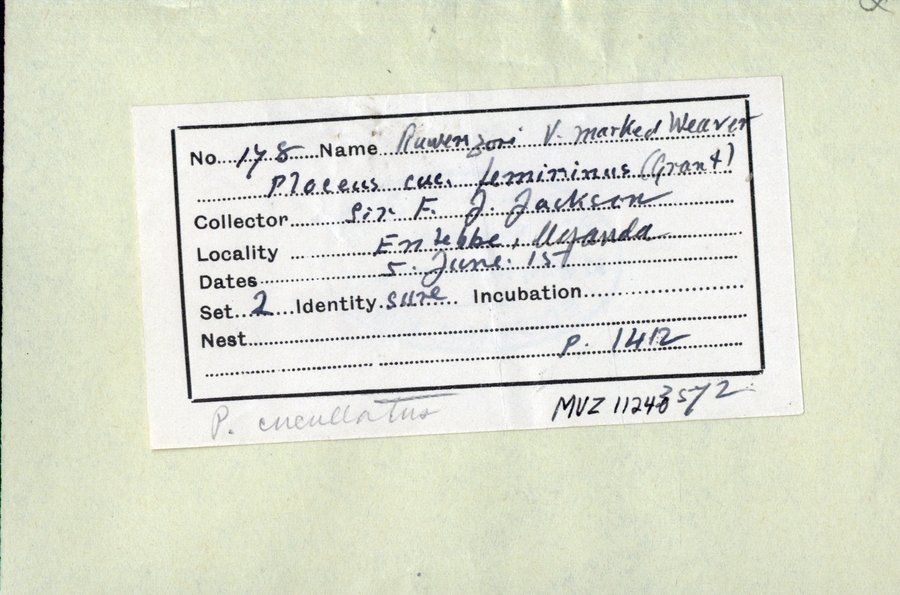 No. 178 Name Ruwenzori V. marked Weaver
Ploceus cuc. femininus (Grant)
Collector Sir F. J. Jackson
Locality Entebbe, Uganda
Dates 5. June. 15
Set 2 Identity sure Incubation
Nest
P. 1412
P. cucullatus
MVZ 11240 3572